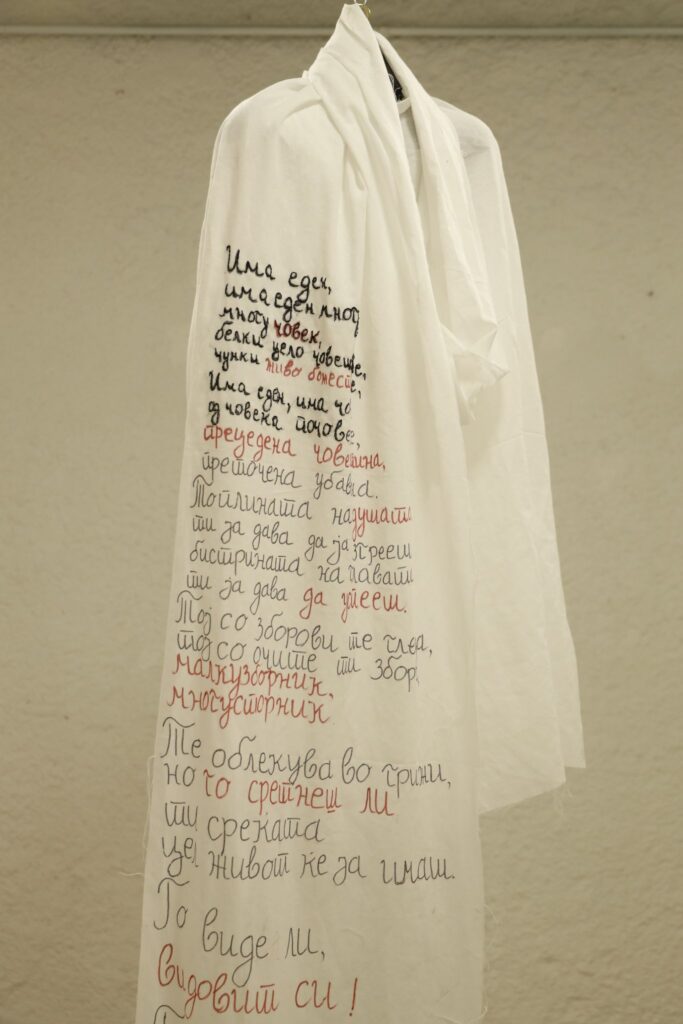 Има еден,
има еден мног
многу човек,
белки цело човеште,
чунки живо божесте,
Има еден, има чо
од човека почове,
прецедена човештина,
преточена убава.
Топлината на душата
ти ја дава да ја грееш
бистрината на
ти ја дава да
Тој со зборови те гледа,
тој со очите ти збор,
малкузборник,
многусторник
Те облекува во грижи,
но го сретнеш ли
ти среќата
цел живот ќе ја имаш.
Го виде ли,
видовит си!